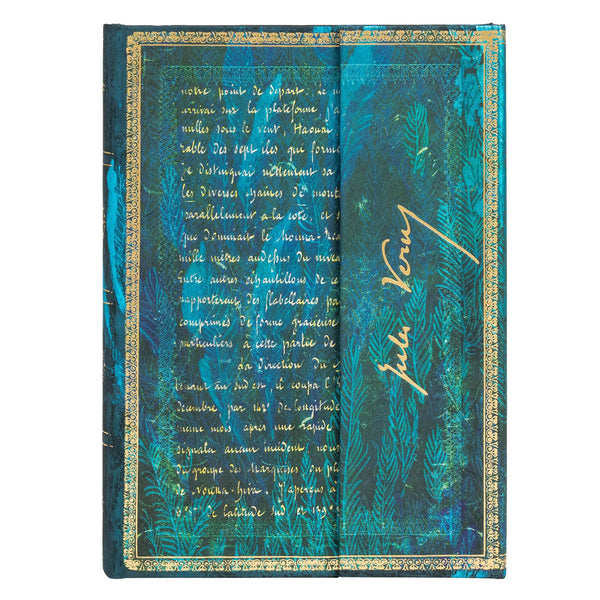 notre point de départ. Le n
arrivai sur la plateforme j'a
milles sous le vent, Haouai
rable des sept iles qui form
je distinguai nettement sa
les diverses chaînes de mont
parallelement a la cote, et s
que dominait le Mouna-Rea
mille mètres audessus du nivea
Entre autres échantillons de ce
rapporterent des flabellaires pa
comprimés de forme gracieuse
particuliers à cette partie de
La direction du
au sud est, il coupa l'
decembre par 142° de longitude
meme mois après une rapide
signala aucun incident, nous
du groupe des Marquises, ou
de Nouka-hiva. J'aperçus à
8° de latitude sud et 139°
Jules Verne